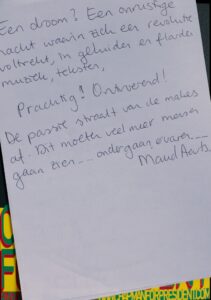 Een droom? Een onrustige
nacht waarin zich een revolutie
voltrekt, in geluiden en flarden
muziek, teksten,
Prachtig! Ontroerend!
De passie straalt van de makers
af. Dit moeten veel meer mensen
gaan zien... ondergaan, ervaren...
Maud